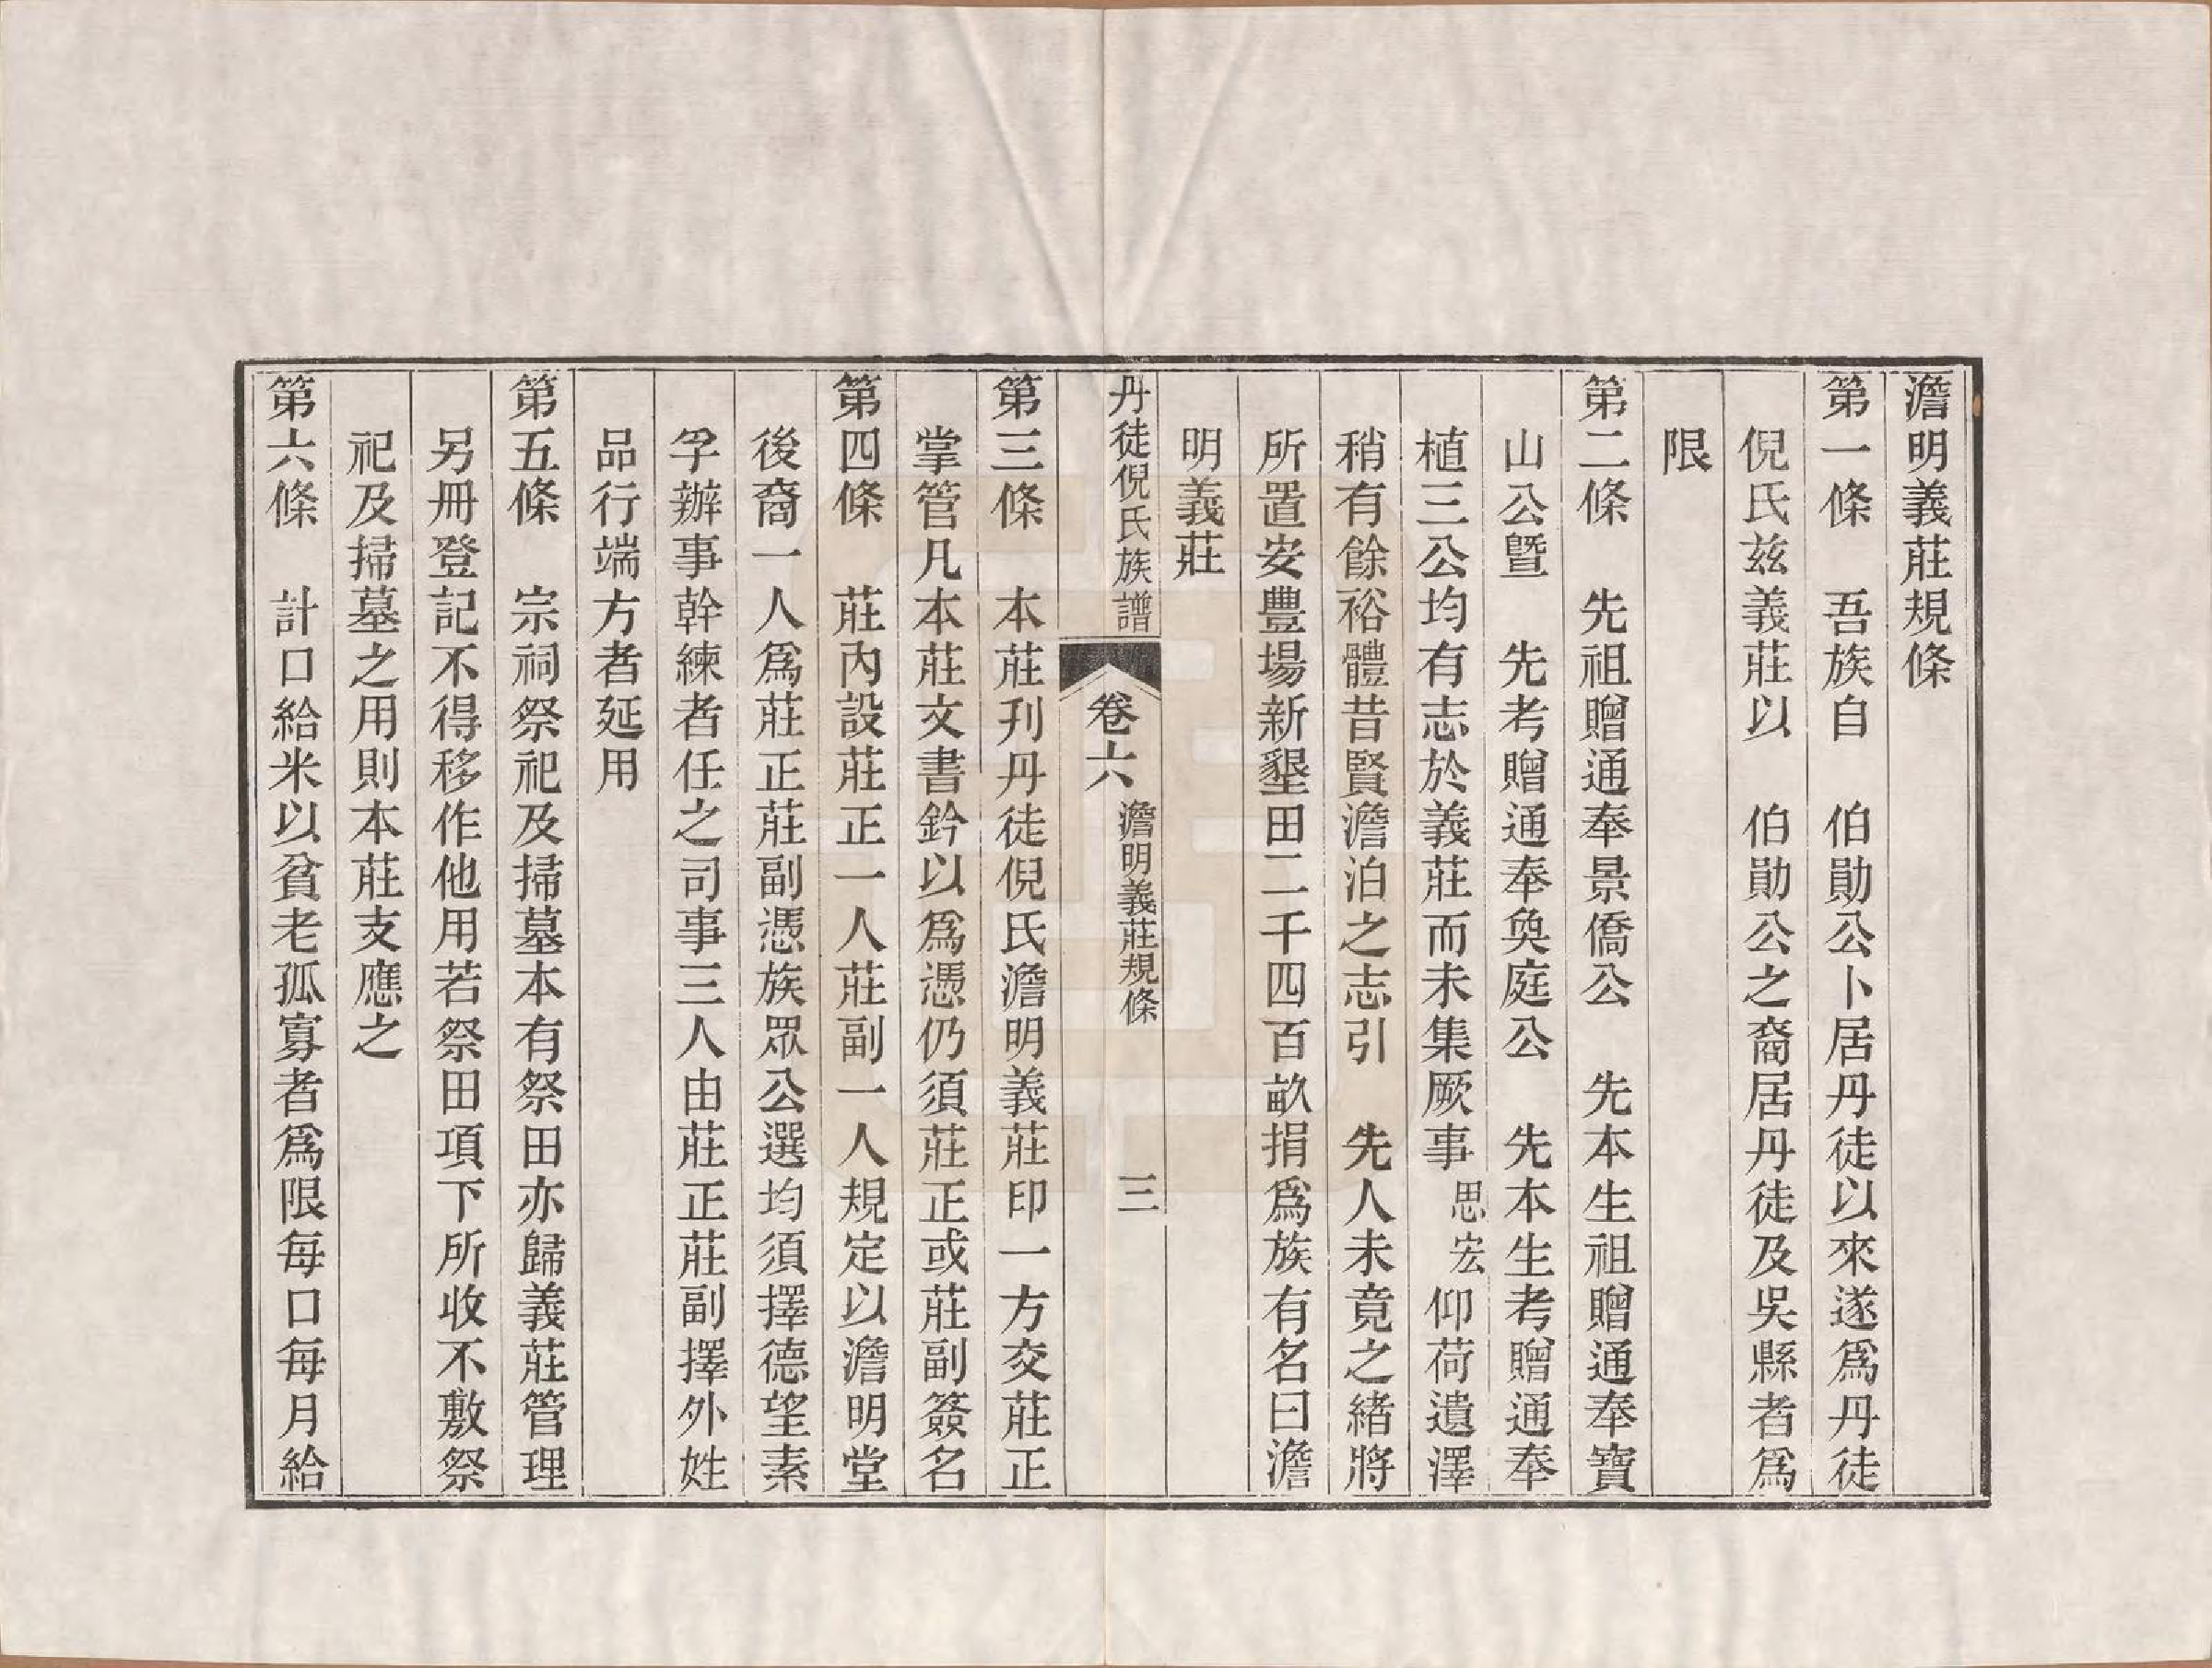 澹明義莊規條
第一條　吾族自　伯勛公卜居丹徒以來遂爲丹徒
倪氏茲義莊以　伯勛公之裔居丹徒及吳縣者爲
限
第二條　先祖贈通奉景僑公　先本生祖贈通奉寶
山公暨　先考贈通奉奐庭公　先本生考贈通奉
植三公均有志於義莊而未集厥事思宏仰荷遺澤
稍有餘裕體昔賢澹泊之志引　先人未竟之緒將
所置安豐場新墾田二千四百畝捐爲族有名曰澹
明義莊
丹徒倪氏族譜　卷六　澹明義莊規條　三
第三條　本莊刋丹徒倪氏澹明義莊印一方交莊正
掌管凡本莊文書鈐以爲憑仍須莊正或莊副簽名
第四條　莊內設莊正一人莊副一人規定以澹明堂
後裔一人爲莊正莊副憑族眾公選均須擇德望素
孚辦事幹練者任之司事三人由莊正莊副擇外姓
品行端方者延用
第五條　宗祠祭祀及掃墓本有祭田亦歸義莊管理
另冊登記不得移作他用若祭田項下所收不敷祭
祀及掃墓之用則本莊支應之
第六條　計口給米以貧老孤寡者爲限每口每月給